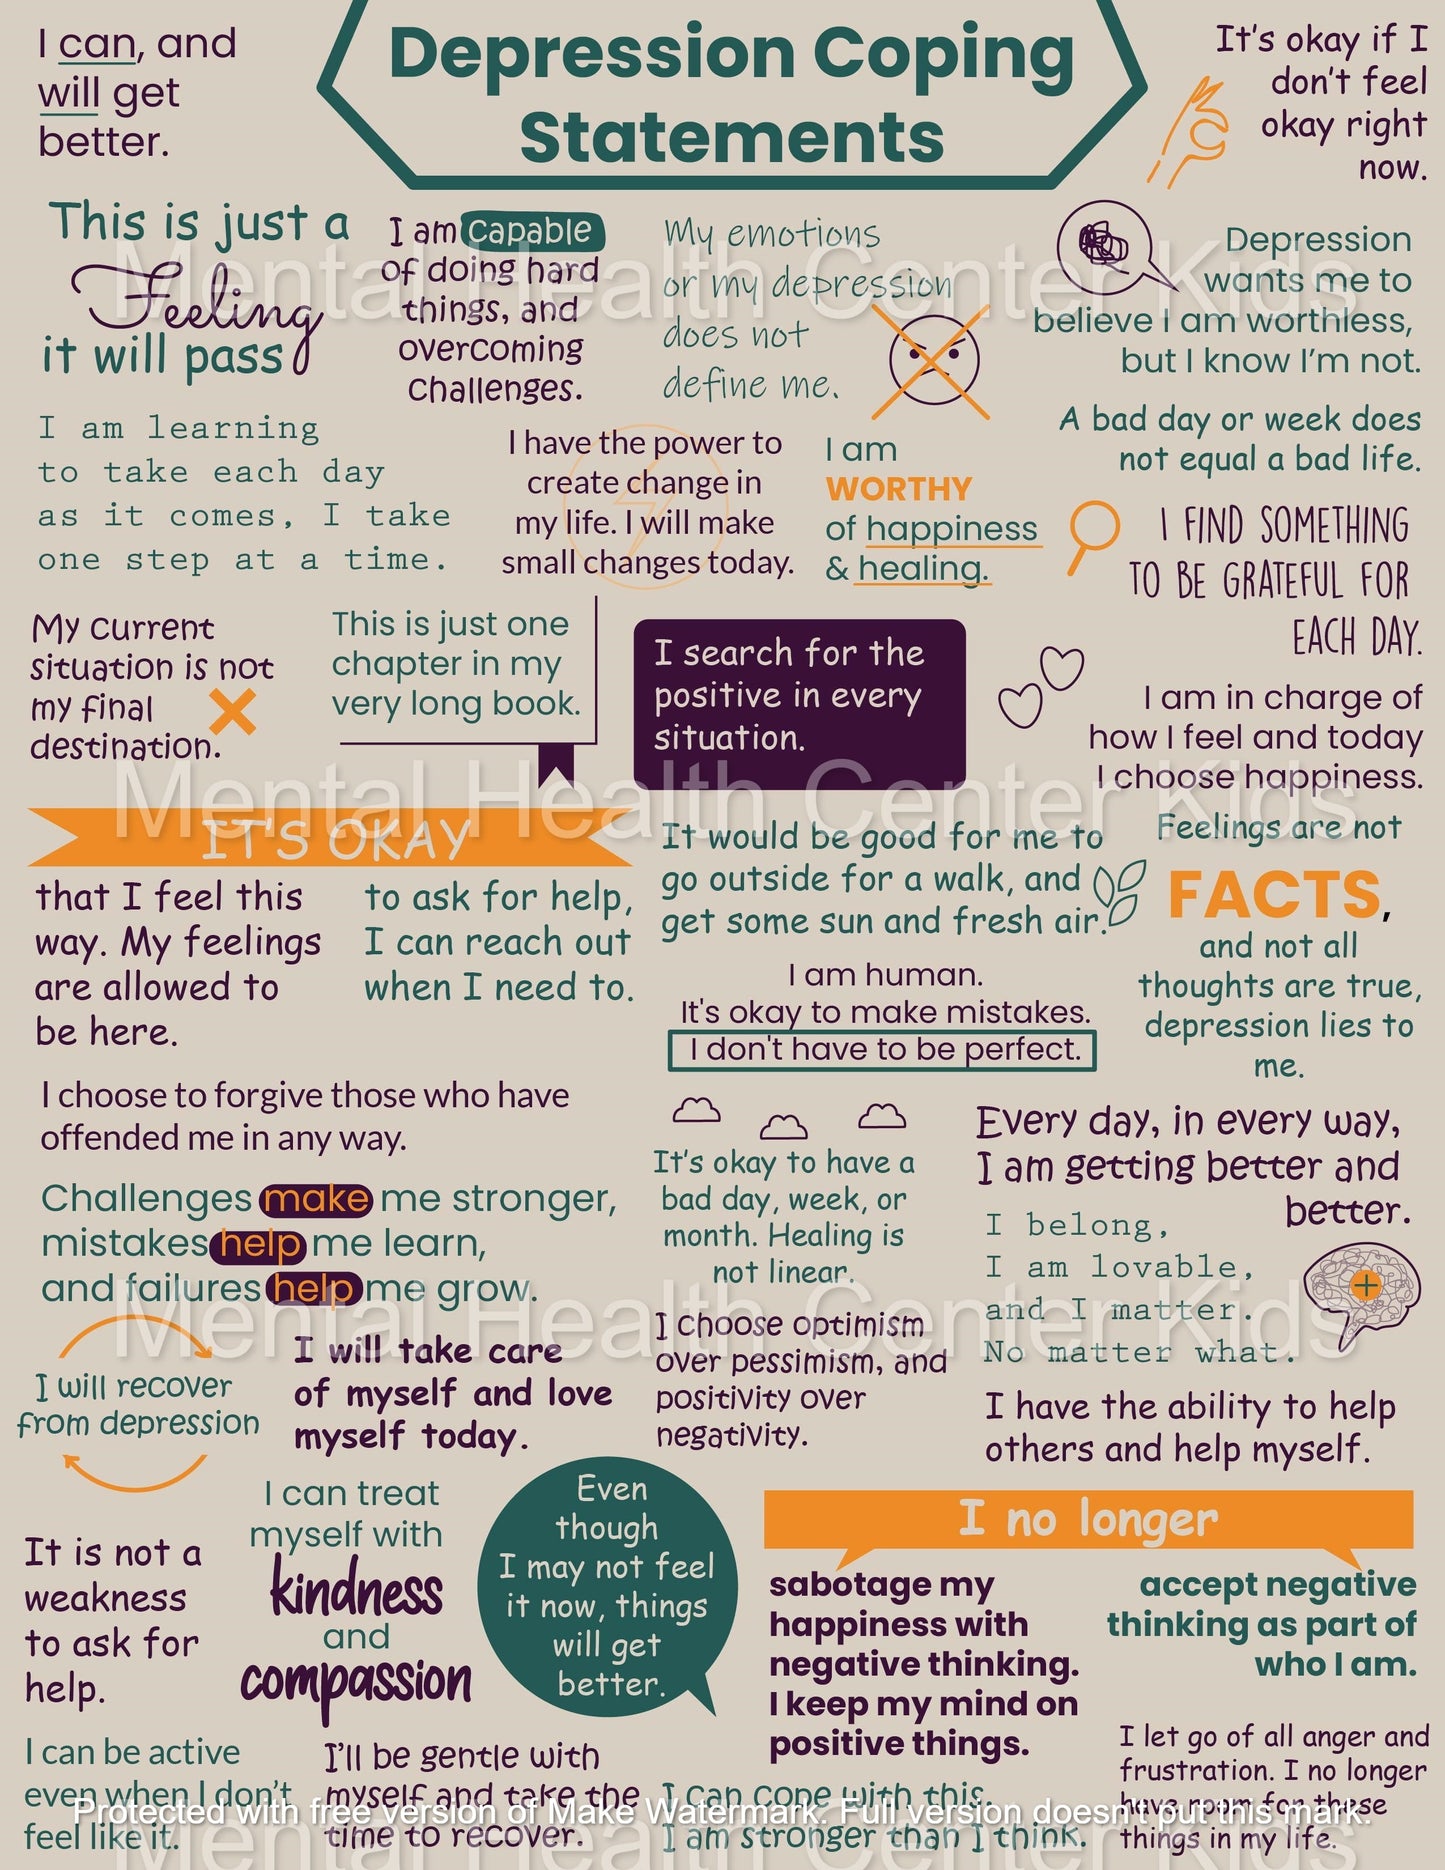 Depression Coping
Statements
I can, and
will get
better.
It's okay if I
don't feel
okay right
now.
This is just a
Feeling
it will pass
I am capable
of doing hard
things, and
overcoming
challenges.
My emotions
or my depression
does not
define me.
Depression
wants me to
believe I am worthless,
but I know I'm not.
A bad day or week does
not equal a bad life.
I am learning
to take each day
as it comes, I take
one step at a time.
I have the power to
create change in
my life. I will make
small changes today.
I am
WORTHY
of happiness
& healing.
I FIND SOMETHING
TO BE GRATEFUL FOR
EACH DAY.
My current
situation is not
my final
destination.
This is just one
chapter in my
very long book.
I search for the
positive in every
situation.
I am in charge of
how I feel and today
I choose happiness.
IT'S OKAY
that I feel this
way. My feelings
are allowed to
be here.
to ask for help,
I can reach out
when I need to.
It would be good for me to
go outside for a walk, and
get some sun and fresh air.
Feelings are not
FACTS,
and not all
thoughts are true,
depression lies to
me.
I am human.
It's okay to make mistakes.
I don't have to be perfect.
I choose to forgive those who have
offended me in any way.
Challenges make me stronger,
mistakes help me learn,
and failures help me grow.
It's okay to have a
bad day, week, or
month. Healing is
not linear.
Every day, in every way,
I am getting better and
better.
I belong,
I am lovable,
and I matter.
No matter what.
I will recover
from depression
I will take care
of myself and love
myself today.
I choose optimism
over pessimism, and
positivity over
negativity.
I have the ability to help
others and help myself.
It is not a
weakness
to ask for
help.
I can treat
myself with
kindness
and
compassion
Even
though
I may not feel
it now, things
will get
better.
I no longer
sabotage my
happiness with
negative thinking.
I keep my mind on
positive things.
accept negative
thinking as part of
who I am.
I can be active
even when I don't
feel like it.
I'll be gentle with
myself and take the
time to recover.
I can cope with this.
I am stronger than I think.
I let go of all anger and
frustration. I no longer
have room for these
things in my life.
Mental Health Center Kids
Mental Health Center Kids
Mental Health Center Kids
Mental Health Center Kids
Protected with free version of Make Watermark. Full version doesn't put this mark.